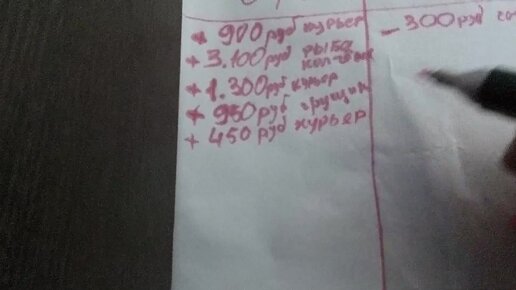 + 900 руб курьер
+ 3.100 руб рыба
+ 1.300 руб курьер
+ 950 руб грущик
+ 450 руб курьер
- 300 руб